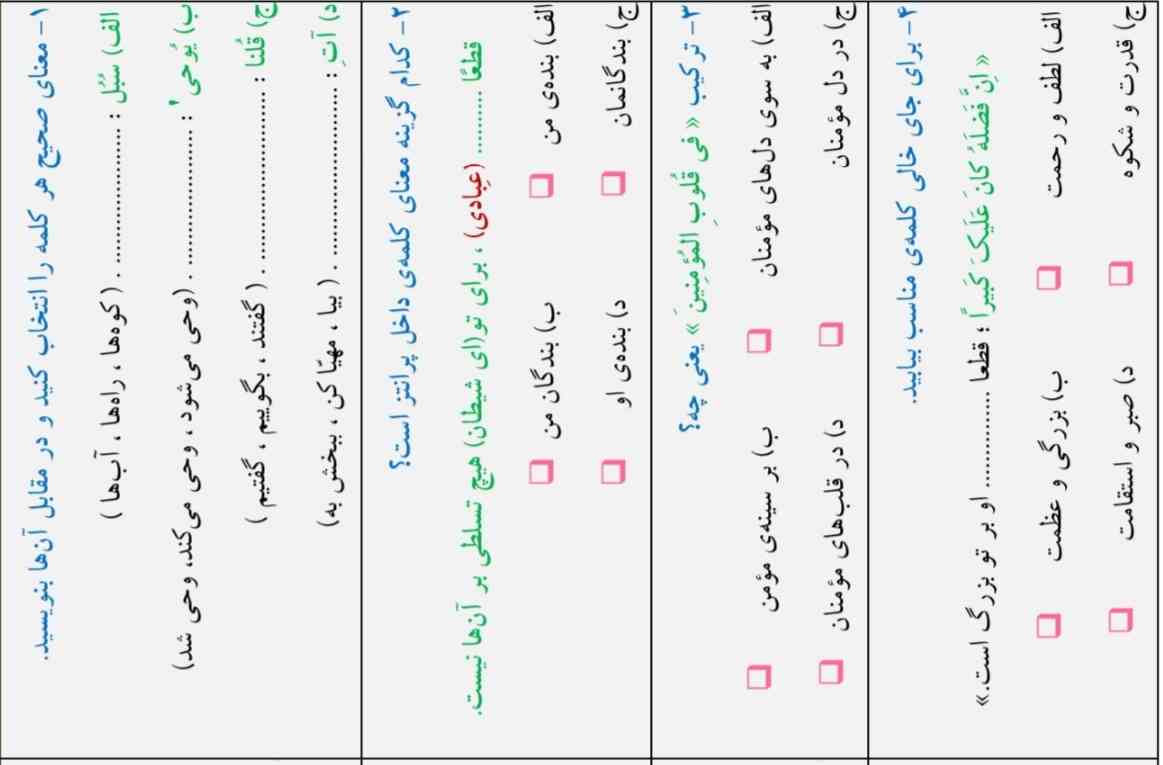 ۱- معنای صحیح هر کلمه را انتخاب کنید و در مقابل آن‌ها بنویسید.
الف) سُبُل : .................... . ( کوه‌ها ، راه‌ها ، آب‌ها )
ب) یُوحیٰ : .................... . (وحی می‌شود ، وحی می‌کند، وحی شد)
ج) قُلنا : .................... . ( گفتند ، بگوییم ، گفتیم )
د) آتِ : .................... . ( بیا ، مهیّا کن ، ببخش به)
۲- کدام گزینه معنای کلمه‌ی داخل پرانتز است؟
قطعًا .......... (عِبادی) ، برای تو(ای شیطان) هیچ تسلطی بر آن‌ها نیست.
الف) بنده‌ی من ❑ ب) بندگان من ❑
ج) بندگانمان ❑ د) بنده‌ی او ❑
۳- ترکیب « فی قُلُوبِ المُؤمِنینَ » یعنی چه؟
الف) به سوی دل‌های مؤمنان ❑ ب) بر سینه‌ی مؤمن ❑
ج) در دل مؤمنان ❑ د) در قلب‌های مؤمنان ❑
۴- برای جای خالی کلمه‌ی مناسب بیابید.
« اِنَّ فَضلَهُ کانَ عَلَیکَ کَبیرًا ؛ قطعا ............ او بر تو بزرگ است.»
الف) لطف و رحمت ❑ ب) بزرگی و عظمت ❑
ج) قدرت و شکوه ❑ د) صبر و استقامت ❑